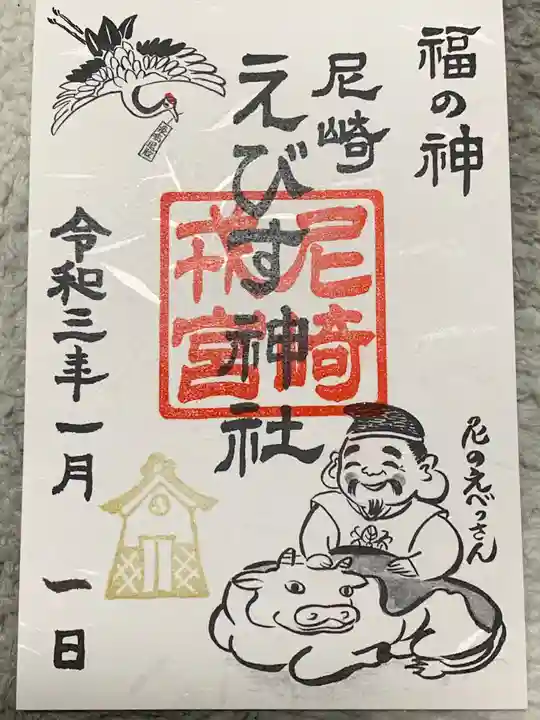 福の神
尼崎
えびす神社
尼崎
戎宮
令和三年一月
一日
尼のえべっさん